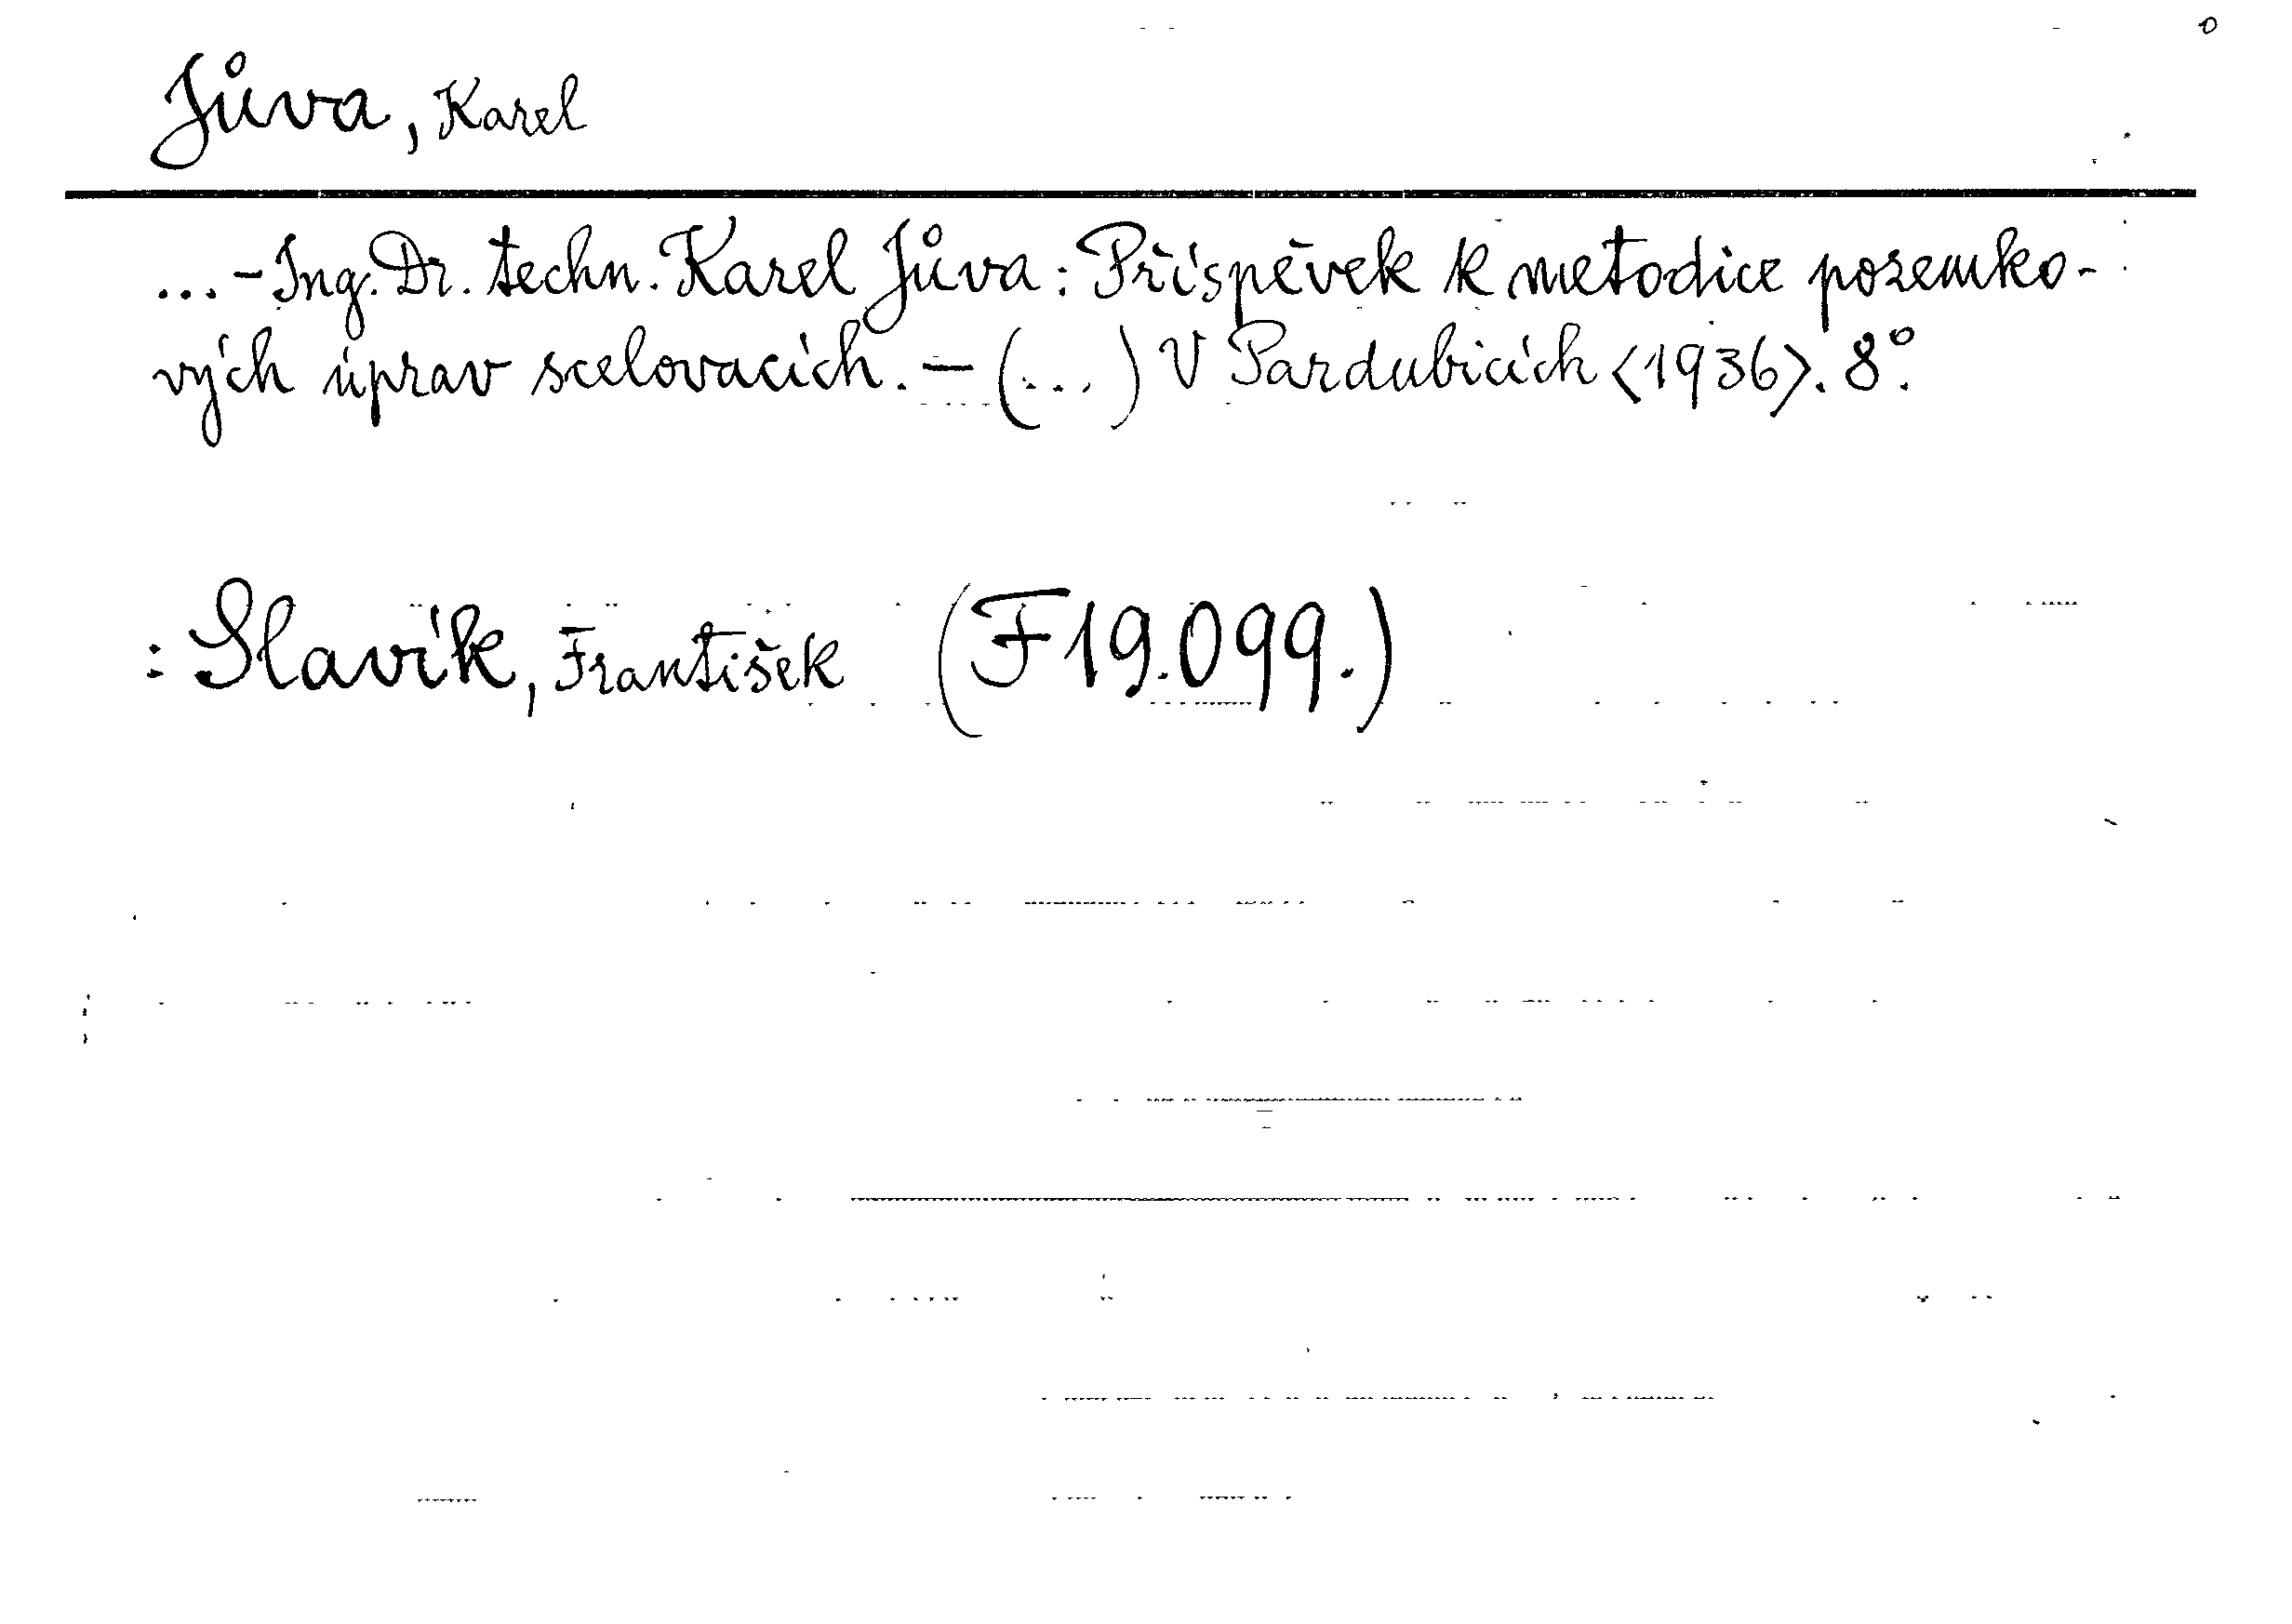 Jůva, Karel
...-Ing. Dr. techn. Karel Jůva: Příspěvek k metodice pozemko-
vých úprav scelovacích. - (...) V Pardubicích <1936>. 8°.
: Slavík, František (F 19.099.)